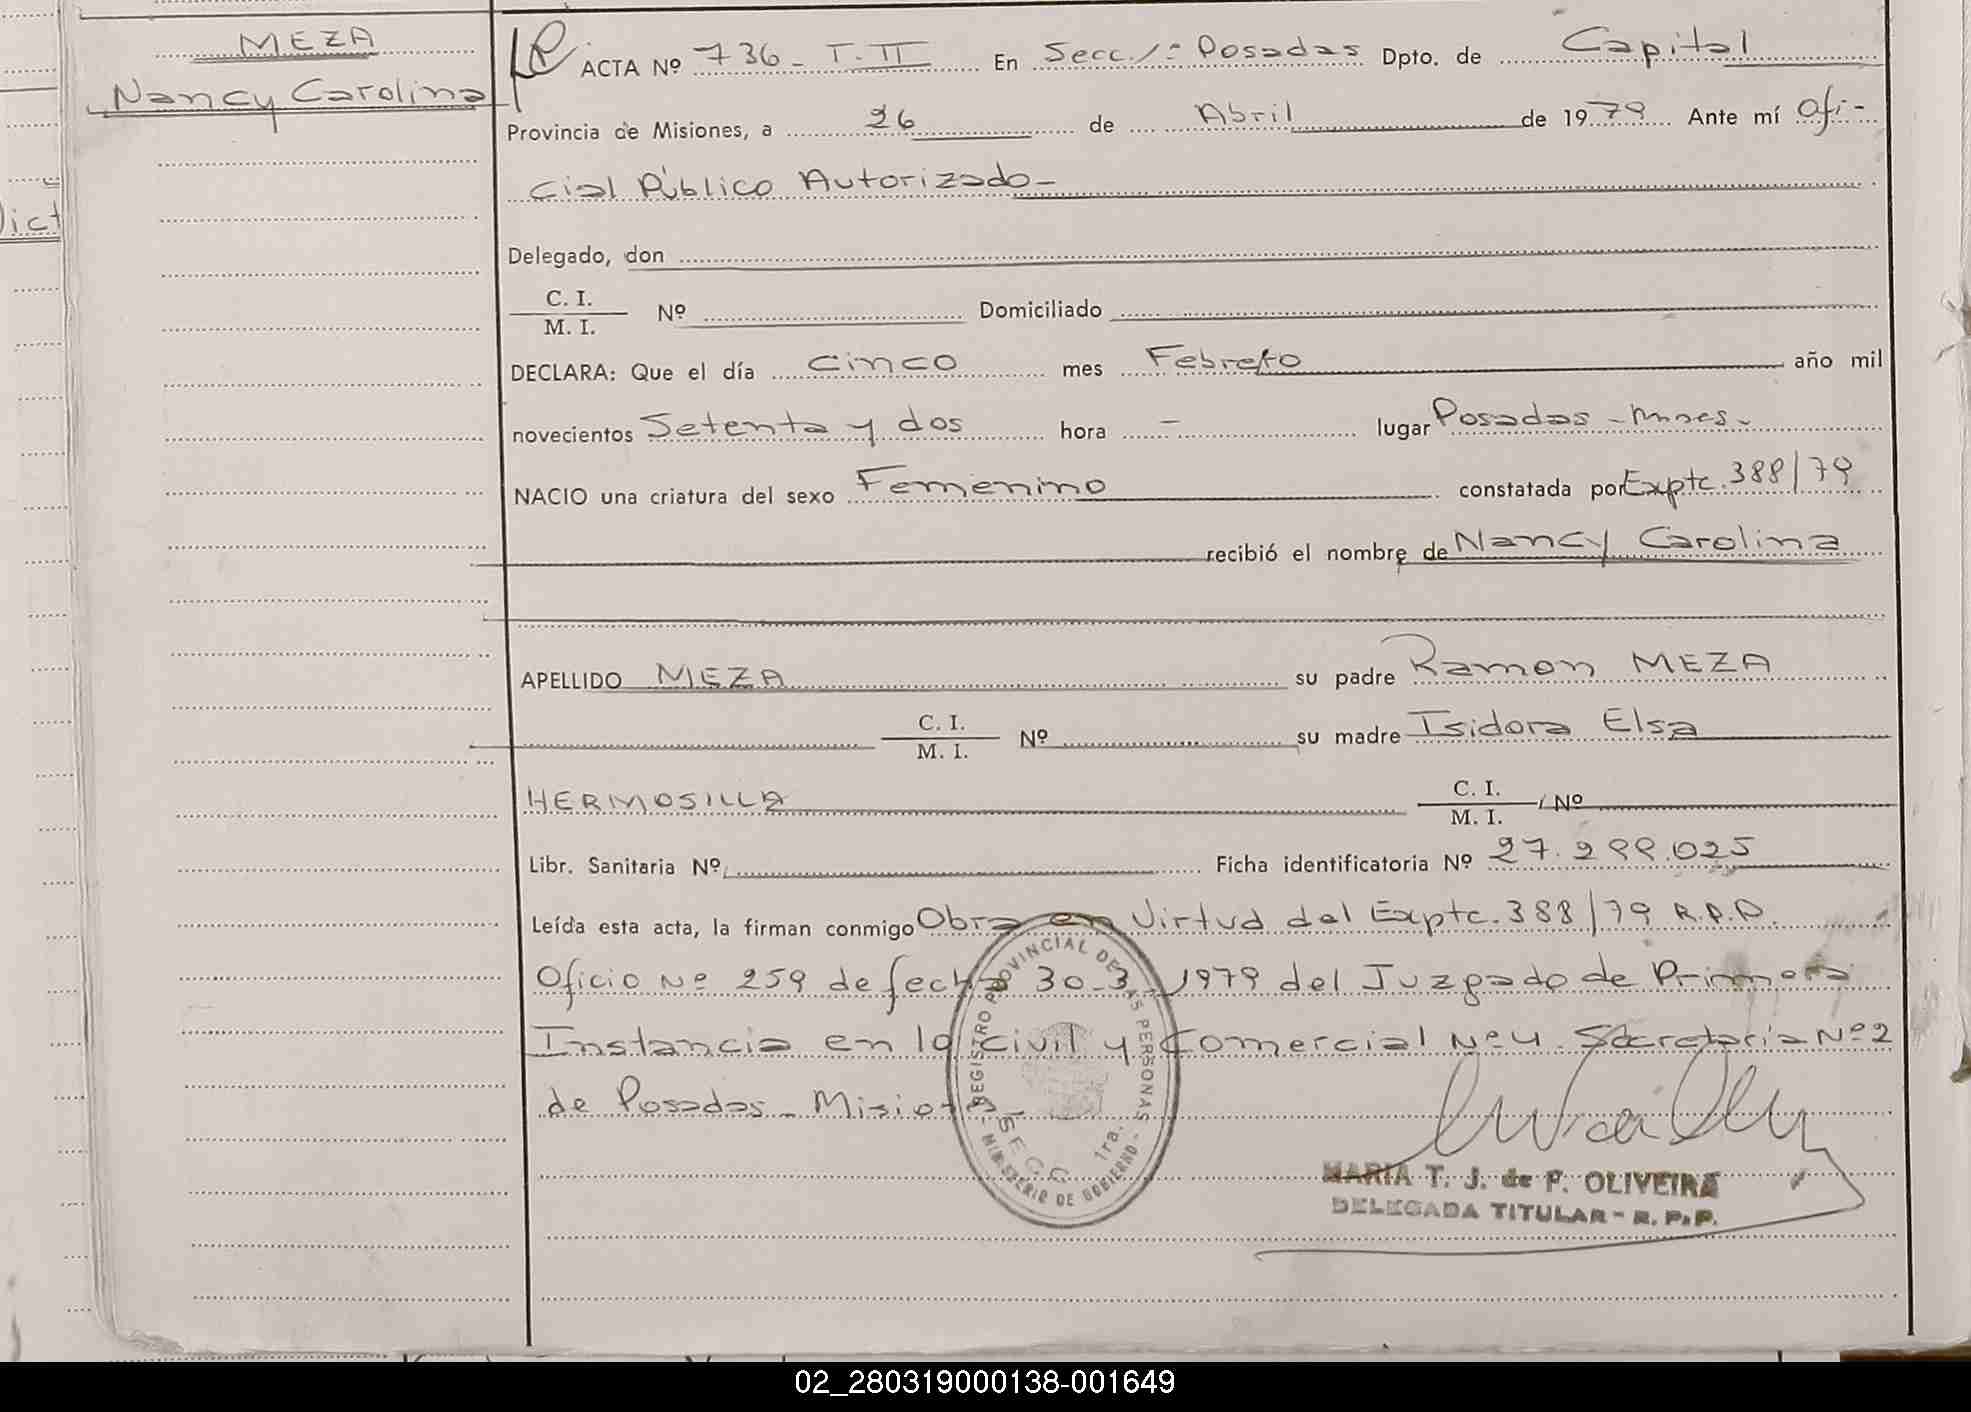 MEZA
Nancy Carolina
ACTA Nº 736 - T. II En Secc. 1ª Posadas Dpto. de Capital
Provincia de Misiones, a 26 de Abril de 1979 Ante mí Ofi-
cial Público Autorizado-
Delegado, don
C. I.
M. I. Nº Domiciliado
DECLARA: Que el día cinco mes Febrero año mil
novecientos Setenta y dos hora - lugar Posadas - Mnes-
NACIO una criatura del sexo Femenino constatada por Expte. 388/79
recibió el nombre de Nancy Carolina
APELLIDO MEZA su padre Ramon MEZA
C. I.
M. I. Nº su madre Isidora Elsa
HERMOSILLA C. I.
M. I. Nº
Libr. Sanitaria Nº Ficha identificatoria Nº 27.299.025
Leída esta acta, la firman conmigo Obra en Virtud del Expte. 388/79 R.P.P.
Oficio Nº 259 de fecha 30-3-1979 del Juzgado de Primera
Instancia en lo Civil y Comercial Nº 4 Secretaria Nº 2
de Posadas - Misiones-
REGISTRO PROVINCIAL DE LAS PERSONAS
SECC. 1ra.
- MINISTERIO DE GOBIERNO -
MARIA T. J. de P. OLIVEIRA
DELEGADA TITULAR - R. P. P.
02_280319000138-001649